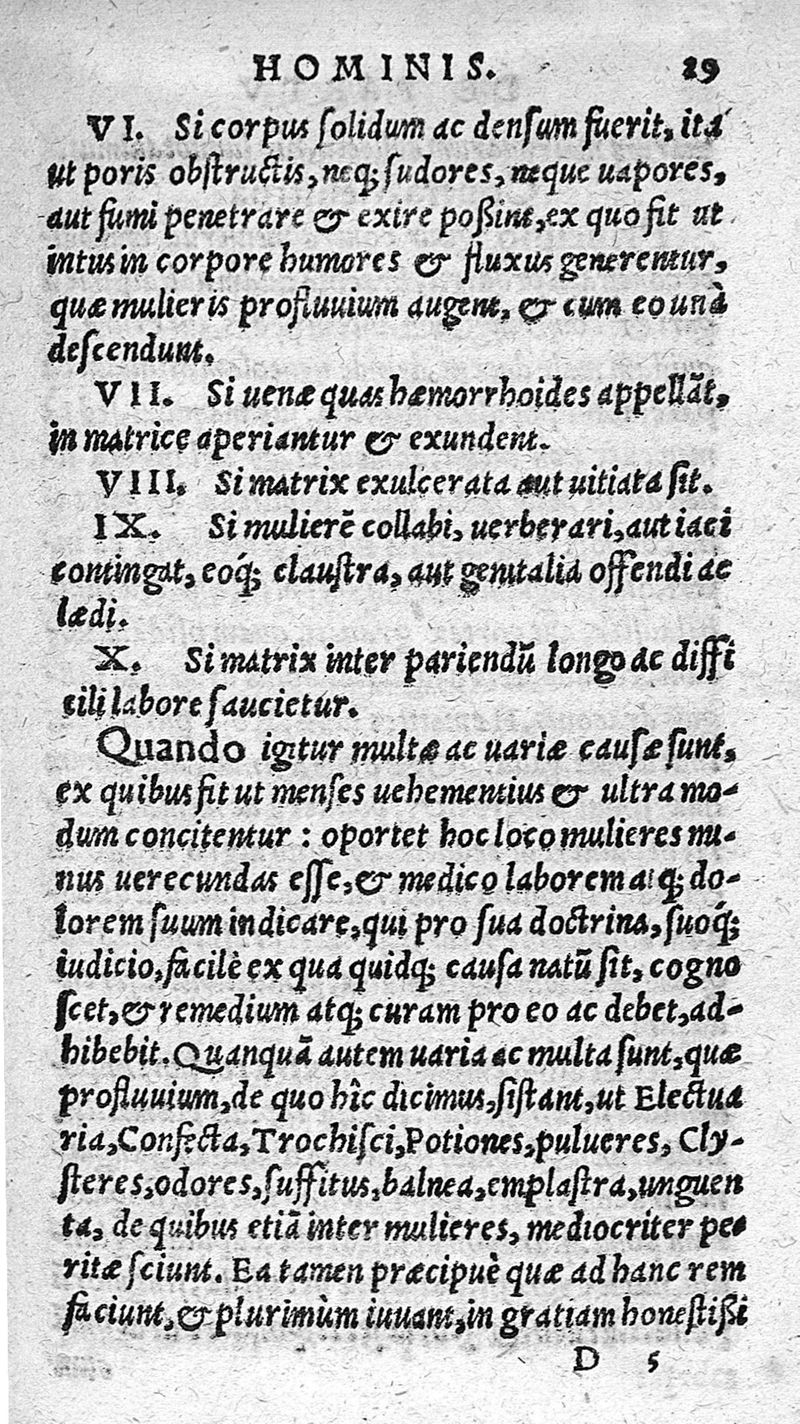 HOMINIS. 29
VI. Si corpus ſolidum ac denſum fuerit, ita
ut poris obſtructis, neq; ſudores, neque uapores,
aut fumi penetrare & exire poßint, ex quo fit ut
intus in corpore humores & fluxus generentur,
quæ mulieris profluuium augent, & cum eo unà
deſcendunt.
VII. Si uenæ quas hæmorrhoides appellãt,
in matrice aperiantur & exundent.
VIII. Si matrix exulcerata aut uitiata ſit.
IX. Si mulierẽ collabi, uerberari, aut iaci
contingat, eoq́; clauſtra, aut genitalia offendi ac
lædi.
X. Si matrix inter pariendũ longo ac diffi
cili labore ſaucietur.
Quando igitur multæ ac uariæ cauſæ ſunt,
ex quibus fit ut menſes uehementius & ultra mo-
dum concitentur : oportet hoc loco mulieres mi-
nus uerecundas eſſe, & medico laborem atq; do-
lorem ſuum indicare, qui pro ſua doctrina, ſuoq́;
iudicio, facilè ex qua quidq; cauſa natũ ſit, cogno
ſcet, & remedium atq; curam pro eo ac debet, ad-
hibebit. Quanquã autem uaria ac multa ſunt, quæ
profluuium, de quo hîc dicimus, ſiſtant, ut Electua
ria, Confecta, Trochiſci, Potiones, pulueres, Cly-
ſteres, odores, ſuffitus, balnea, emplaſtra, unguen
ta, de quibus etiã inter mulieres, mediocriter pe-
ritæ ſciunt. Ea tamen præcipuè quæ ad hanc rem
faciunt, & plurimùm iuuant, in gratiam honeſtißi
D 5